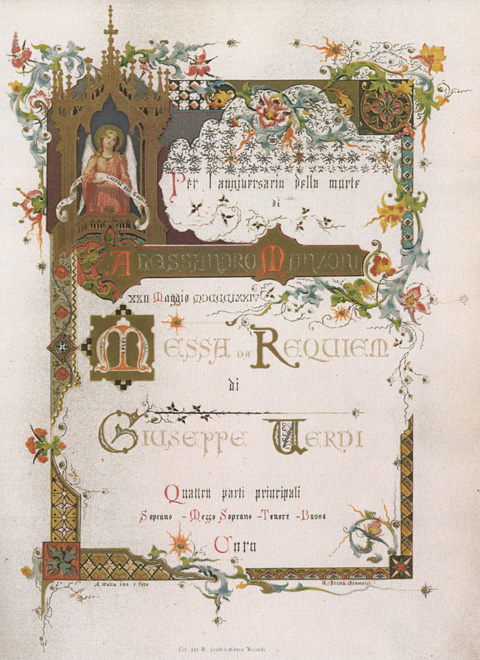 Per l'anniversario della morte
di
Alessandro Manzoni
XXII Maggio MDCCCLXXIV
Messa da Requiem
di
Giuseppe Verdi
Quattro parti principali
Soprano - Mezzo Soprano - Tenore - Basso
Coro